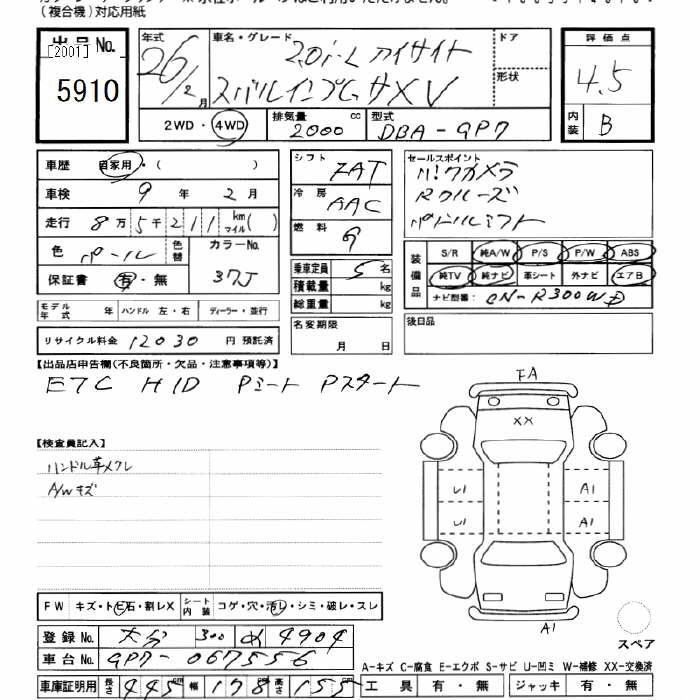 (複合機)対応用紙
出品No.
[2001]
5910
年式 26/2月
車名・グレード 2.0i-L アイサイト
スバルインプレッサXV
ドア
形状
2WD・4WD
排気量 2000 cc
型式 DBA-GP7
評価点
4.5
内装 B
車歴 自家用・( )
車検 9年2月
走行 8万5千211 km マイル( )
色 パール 色替
カラーNo. 37J
保証書 有・無
モデル年式 年 ハンドル 左・右 ディーラー・並行
リサイクル料金 12030 円 預託済
シフト 7AT
冷房 AAC
燃料 G
乗車定員 5名
積載量 kg
総重量 kg
名変期限 月 日
セールスポイント
バックカメラ
Rクルーズ
パドルシフト
装備品 S/R 純A/W P/S P/W ABS
純TV 純ナビ 革シート 外ナビ エアB
ナビ型番: CN-R300WD
後日品
【出品店申告欄(不良箇所・欠品・注意事項等)】
ETC HID Pシート Pスタート
FA
XX
【検査員記入】
ハンドル革メクレ
A/Wキズ
U1 A1
U1 A1
A1
スペア
FW キズ・トビ石・割レX シート内装 コゲ・穴・汚レ・シミ・破レ・スレ
登録No. 大分 300 め 4904
車台No. GP7-067556
車庫証明用 長さ 445cm 幅 178cm 高さ 155cm
A-キズ C-腐食 E-エクボ S-サビ U-凹ミ W-補修 XX-交換済
工具 有・無 ジャッキ 有・無